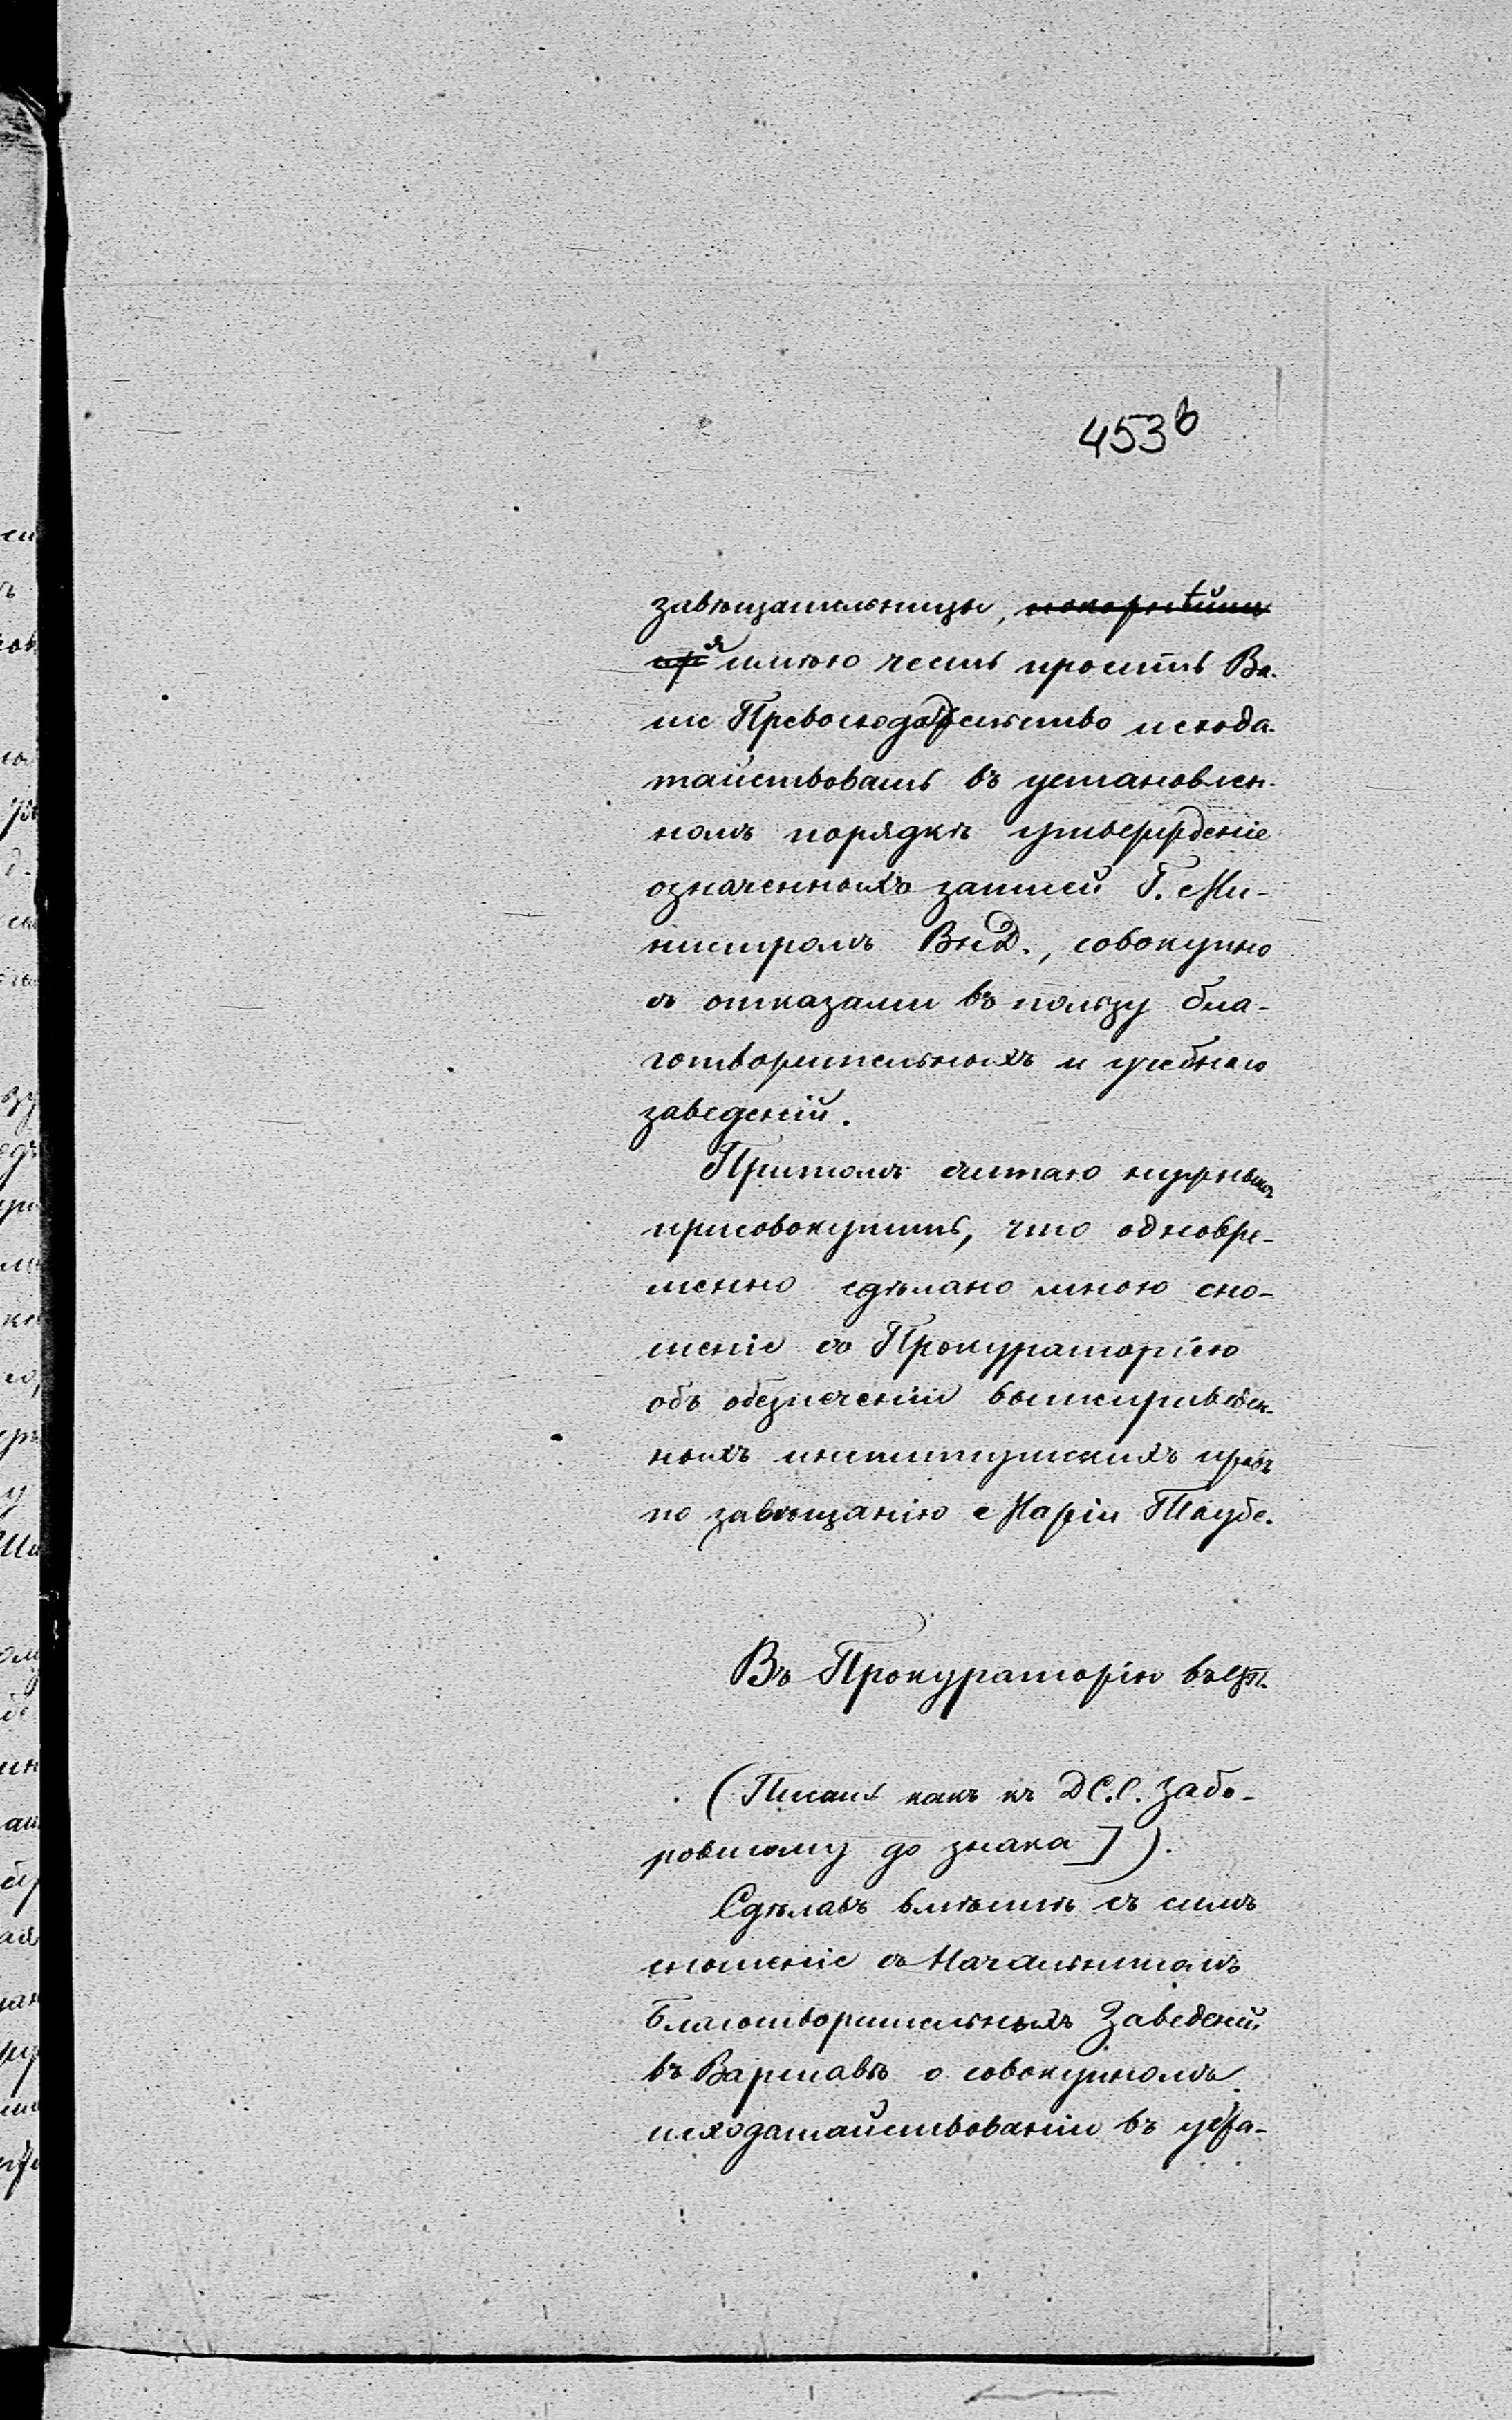 453в
завѣщательницы, покорнѣйше
пр я имѣю честь просить Ва-
ше Превосходительство исхода-
тайствовать въ установлен-
номъ порядкѣ утвержденіе
означенныхъ записей Г. Ми-
нистромъ ВнД., совокупно
съ отказами въ пользу бла-
готворительныхъ и учебнаго
заведеній.
Притомъ считаю нужнымъ
присовокупить, что одновре-
менно сдѣлано мною сно-
шеніе съ Прокураторіею
объ обезпеченіи вышеприведен-
ныхъ институтскихъ правъ
по завѣщанію Маріи Таубе.
Въ Прокураторію въ ЦП.
(Писать какъ къ ДС.С. Забо-
ровскому до знака ]).
Сдѣлавъ вмѣстѣ съ симъ
сношеніе съ Начальникомъ
Благотворительныхъ Заведеній
въ Варшавѣ о совокупномъ
исходатайствованіи въ уста-